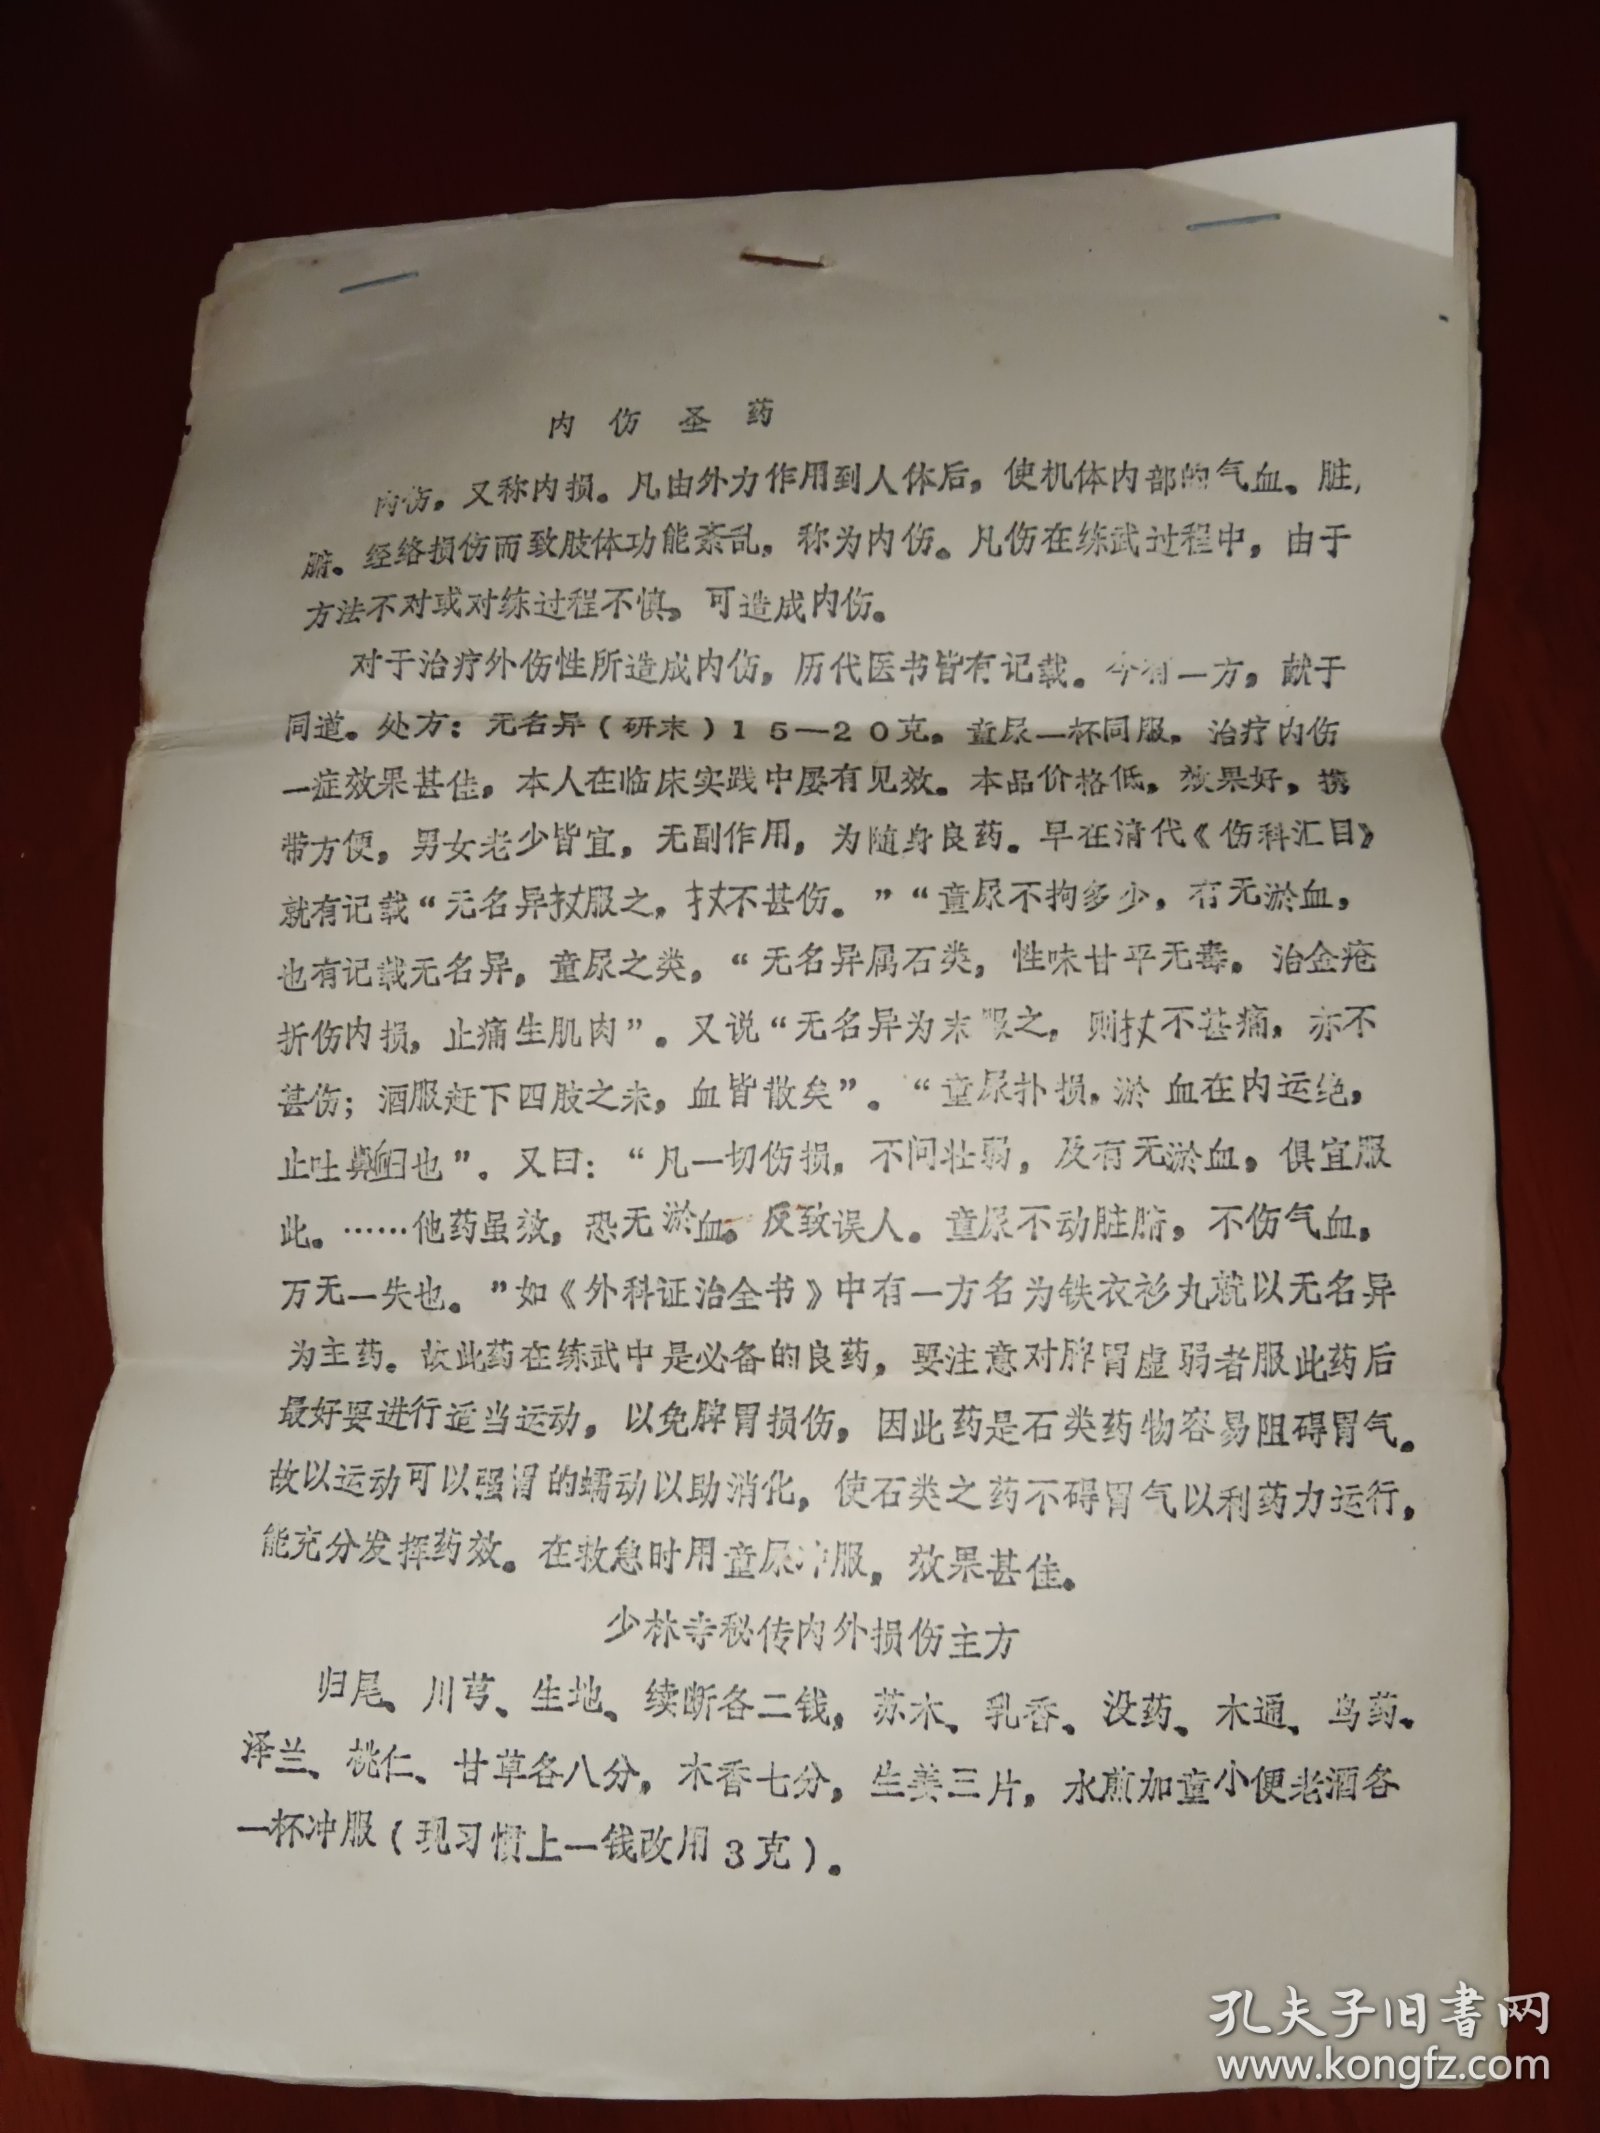 内伤圣药
内伤，又称内损。凡由外力作用到人体后，使机体内部的气血、脏，
腑。经络损伤而致肢体功能紊乱，称为内伤。凡伤在练武过程中，由于
方法不对或对练过程不慎，可造成内伤。
对于治疗外伤性所造成内伤，历代医书皆有记载。今有一方，献于
同道。处方：无名异（研末）15—20克，童尿一杯同服，治疗内伤
一症效果甚佳，本人在临床实践中屡有见效。本品价格低，效果好，携
带方便，男女老少皆宜，无副作用，为随身良药。早在清代《伤科汇目》
就有记载“无名异扙服之，扙不甚伤。”“童尿不拘多少，有无淤血，
也有记载无名异，童尿之类，“无名异属石类，性味甘平无毒。治金疮
折伤内损，止痛生肌肉”。又说“无名异为末服之，则扙不甚痛，亦不
甚伤；酒服赶下四肢之末，血皆散矣”。“童尿扑损，淤 血在内运绝，
止吐鼻衄也”。又曰：“凡一切伤损，不问壮弱，及有无淤血，俱宜服
此。……他药虽效，恐无淤血。反致误人。童尿不动脏腑，不伤气血，
万无一失也。”如《外科证治全书》中有一方名为铁衣衫丸就以无名异
为主药。故此药在练武中是必备的良药，要注意对脾胃虚弱者服此药后
最好要进行适当运动，以免脾胃损伤，因此药是石类药物容易阻碍胃气。
故以运动可以强胃的蠕动以助消化，使石类之药不碍胃气以利药力运行，
能充分发挥药效。在救急时用童尿冲服，效果甚佳。
少林寺秘传内外损伤主方
归尾、川芎、生地、续断各二钱，苏木、乳香、没药、木通、乌药、
泽兰、桃仁、甘草各八分，木香七分，生姜三片，水煎加童小便老酒各
一杯冲服（现习惯上一钱改用3克）。
孔夫子旧书网
www.kongfz.com